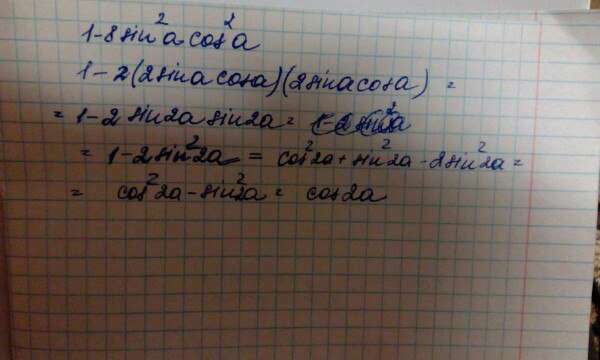 1-8sin²a cos²a
1-2(2sina cosa)(2sina cosa) =
= 1-2 sin2a sin2a =
= 1-2sin²2a = cos²2a + sin²2a - 2sin²2a =
= cos²2a - sin²2a = cos2a